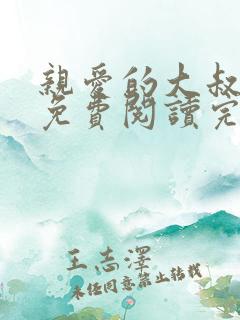 親愛的大叔
免費閱讀完
王志澤
未經同意禁止轉載